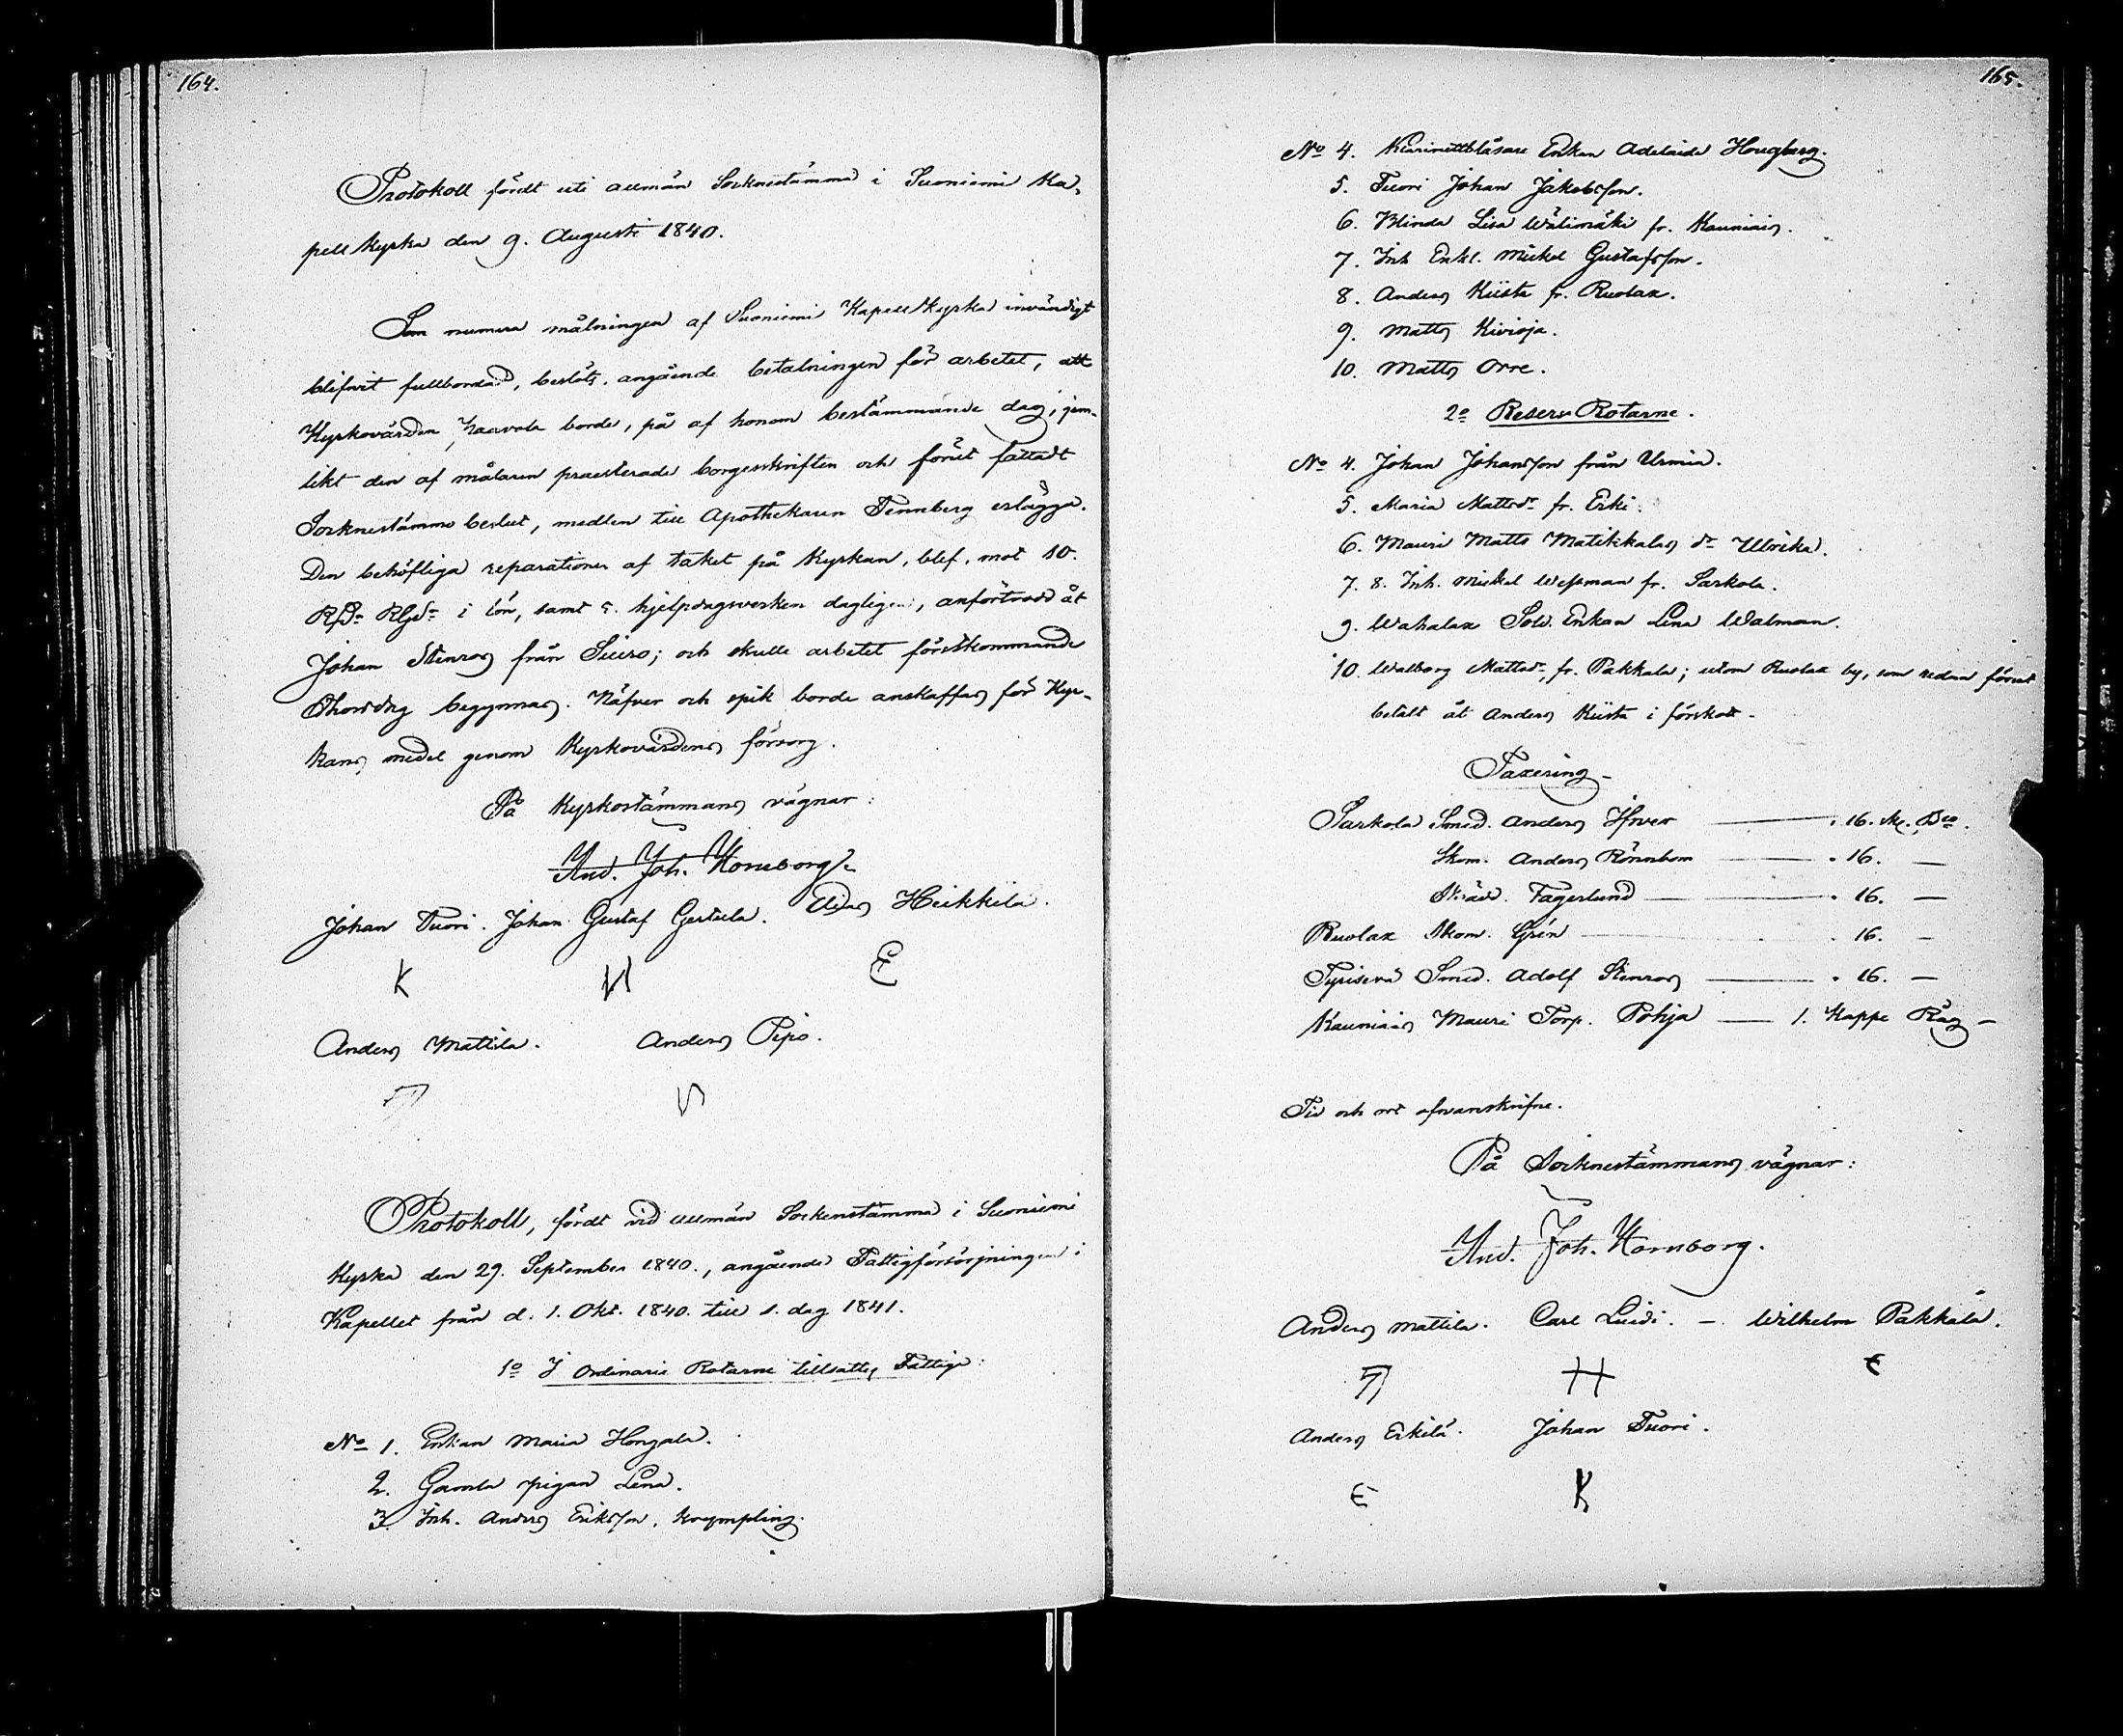 164.
Protokoll fördt uti allmän Socknestämma i Suoniemi Ka-
pell Kyrka den 9. Augusti 1840.
Som numera målningen af Suoniemi Kapell Kyrka invändigt
blifvit fullbordad, beslöts, angående betalningen för arbetet, att
Kyrkovärden Haavola borde, på af honom bestämmande dag, jem-
likt den af målaren praesterade borgesskriften och förut fattadt
Socknestämmo beslut, medlen till Apothekaren Tennberg erlägga.
Den behöfliga reparationen af taket på Kyrkan, blef, mot 10.
RD. Rgds i lön, samt 5. hjelpdagsverken dagligen, anförtrodd åt
Johan Stenros från Siuro; och skulle arbetet förstkommande
Thorsdag begynnas. Näfver och spik borde anskaffas för Kyr-
kans medel genom Kyrkovärdens försorg.
På Kyrkostämmans vägnar:
And. Joh. Hornborg
Johan Tuori. Johan Gustaf Gertula. Elias Heikkilä.
K E
Anders Mattila. Anders Pipo.
Protokoll, fördt vid allmän Sockenstämma i Suoniemi
Kyrka den 29. September 1840., angående Fattigförsörjningen i
Kapellet från d. 1. Okt. 1840. till s. dag 1841.
1o I Ordinarie Rotarne tillsattes Fattige:
No 1. Enkan Maria Hongala.
2. Gamla pigan Lena.
3. Inh. Anders Eriksson, krympling.
165.
No 4. Klarinettblåsare Enkan Adelaide Hougberg.
5. Tuori Johan Jakobsson.
6. Blinda Lisa Wälimäki fr. Kauniais.
7. Inh Enkl. Mickel Gustafsson.
8. Anders Kiista fr. Ruolax.
9. Matts Kivioja.
10. Matts Orre.
2o Reserv Rotarne.
No 4. Johan Johansson från Urmia.
5. Maria Mattsdr fr. Erki.
6. Mauri Matts Matikkalas dr Ulrika.
7. 8. Inh. Mickel Wessman fr. Sarkola.
9. Wahalax Sold. Enkan Lena Walman.
10. Walborg Mattsdr, fr. Pakkala; utom Ruolax by, som redan förut
betalt åt Anders Kiista i förskott.
Taxering
Sarkola Smed. Anders Ifver 16. sk. Bco.
Skom. Anders Rönnbom 16. —
Skrädd. Fagerlund 16. —
Ruolax Skom. Grén 16. —
Tyrisevä Smed. Adolf Stenros 16. —
Kauniais Mauri Torp. Pohja 1. Kappe Råg —
Tid och ort ofvanskrifne.
På Socknestämmans vägnar:
And. Joh. Hornborg.
Anders Mattila. Carl Luidi. — Wilhelm Pakkala.
H E
Anders Erkilä. Johan Tuori.
E K